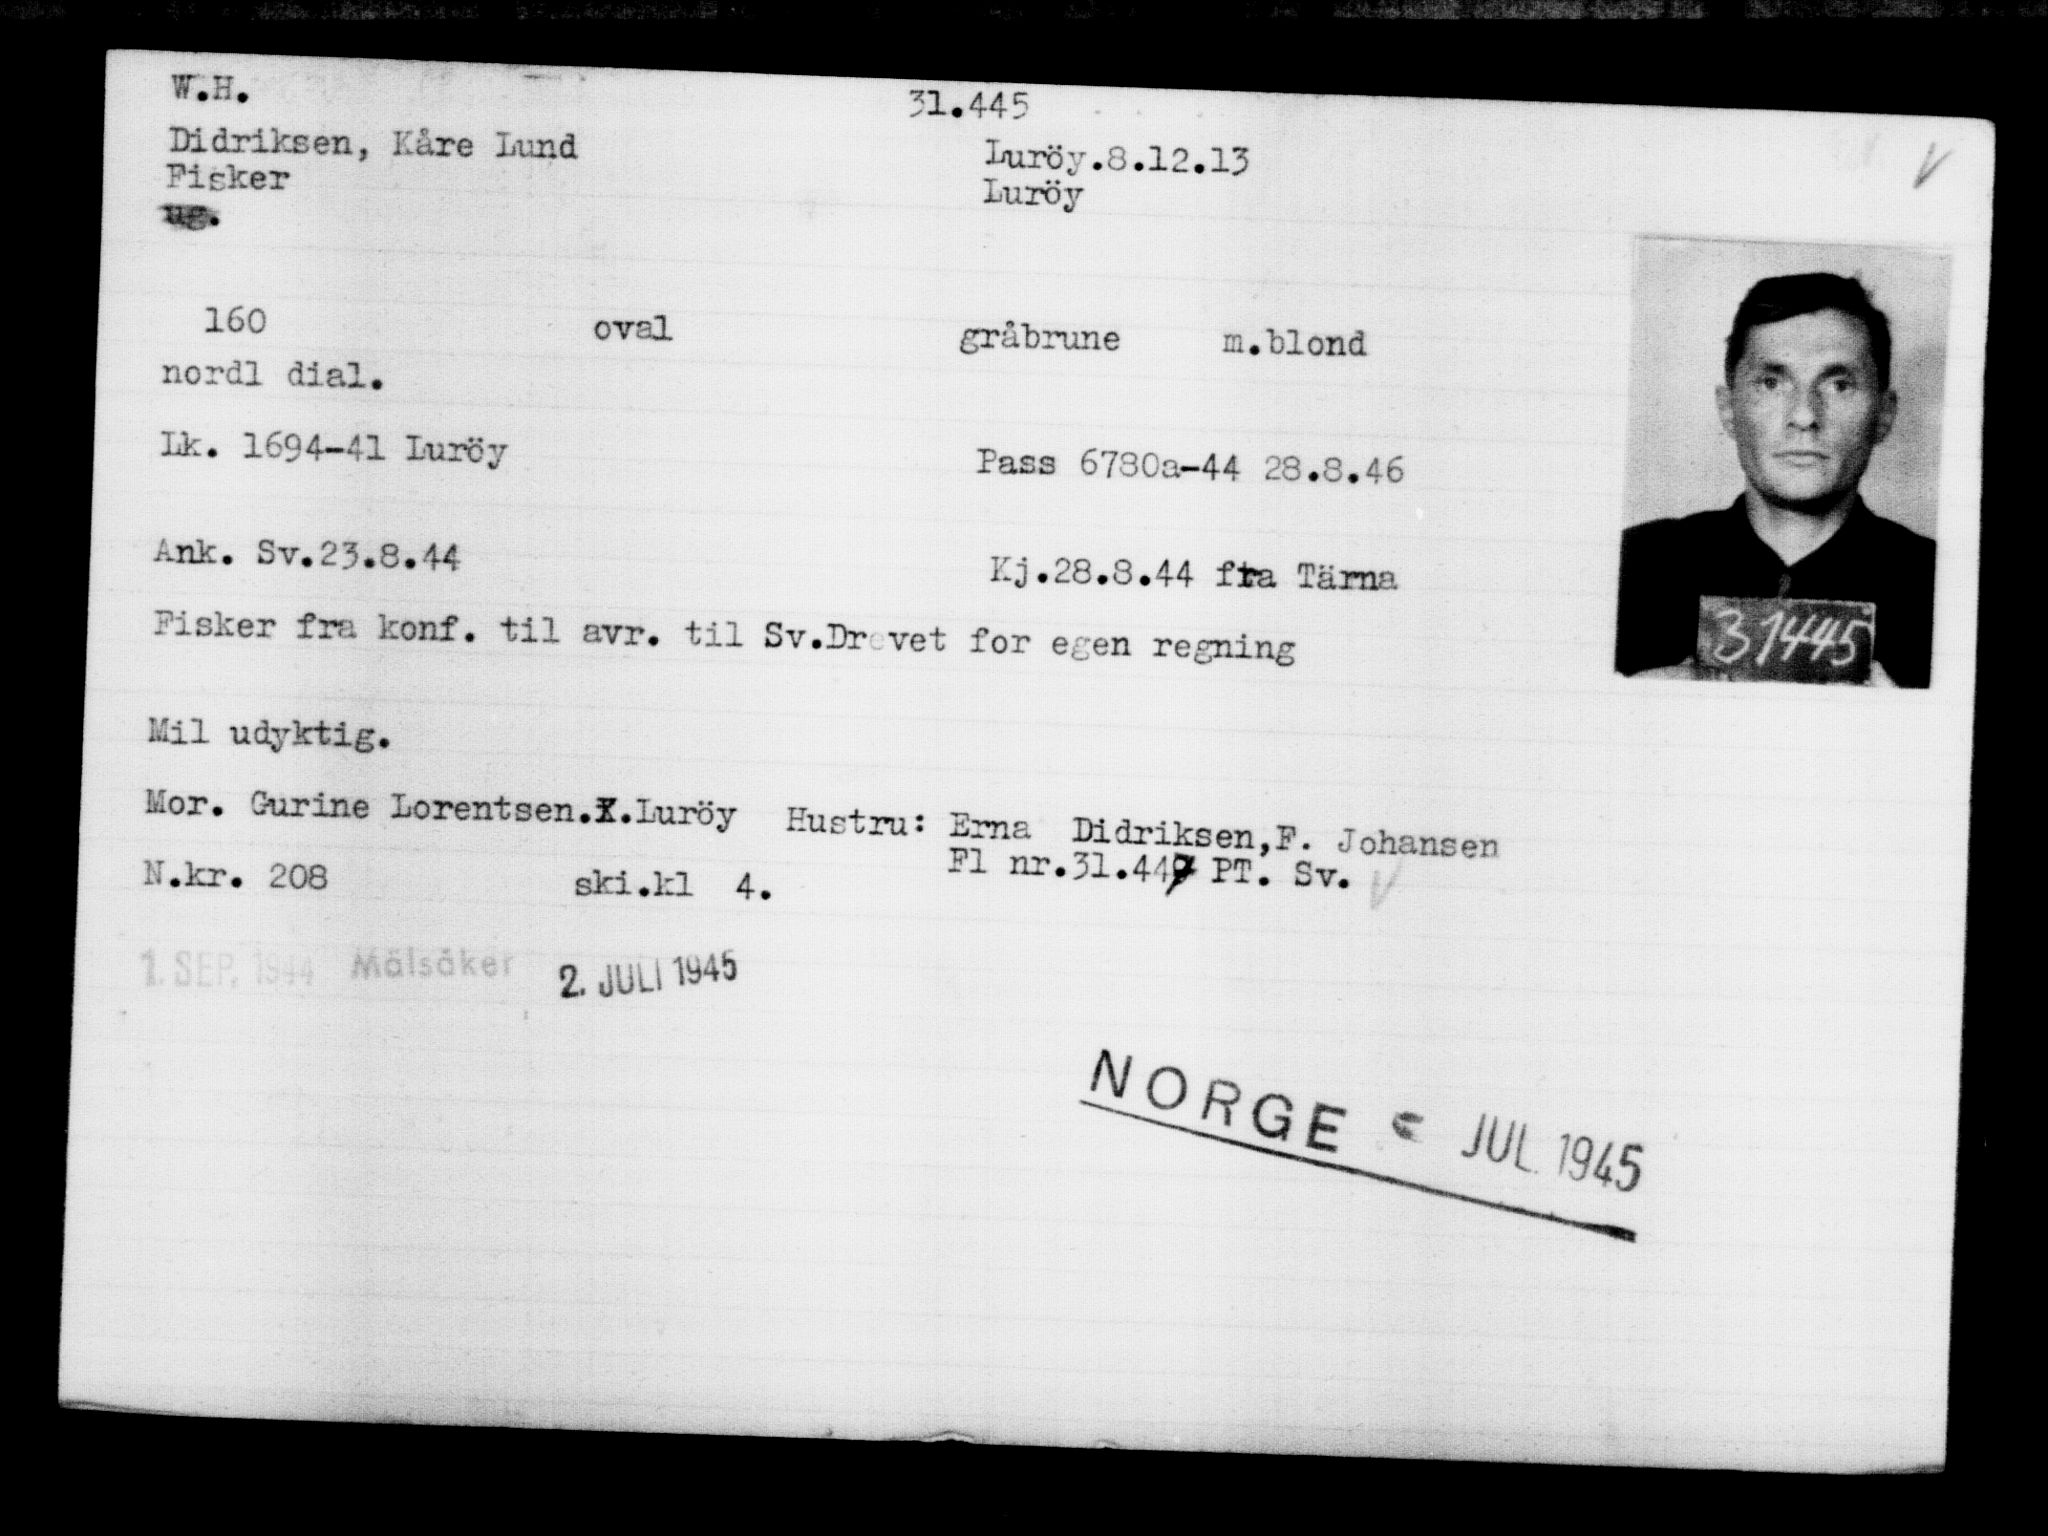 W.H.
31.445
Didriksen, Kåre Lund
Luröy.8.12.13
Fisker
Luröy
ug.
160 oval gråbrune m.blond
nordl dial.
Lk. 1694-41 Luröy
Pass 6780a-44 28.8.46
Ank. Sv.23.8.44
Kj.28.8.44 fra Tärna
Fisker fra konf. til avr. til Sv.Drevet for egen regning
31445
Mil udyktig.
Mor. Gurine Lorentsen. .Luröy Hustru: Erna Didriksen,F. Johansen
Fl nr. PT. Sv.
N.kr. 208 ski.kl 4.
1. SEP. 1944 Mälsåker 2. JULI 1945
NORGE JUL. 1945